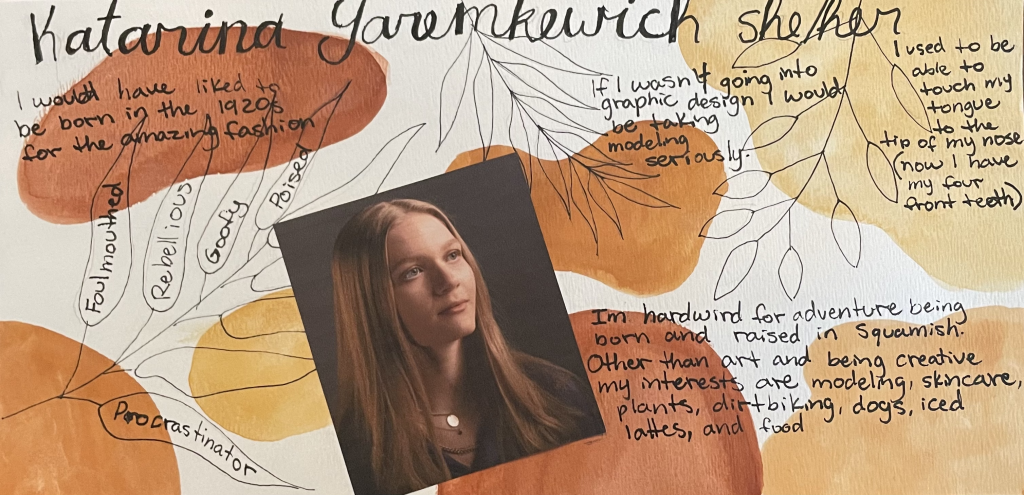 Katarina Yaremkewich she/her
I would have liked to
be born in the 1920s
for the amazing fashion
Foulmouthed
Rebellious
Goofy
Poised
Procrastinator
If I wasn't going into
graphic design I would
be taking
modeling
seriously.
I used to be
able to
touch my
tongue
to the
tip of my nose
(now I have
my four
front teeth)
Im hardwird for adventure being
born and raised in Squamish.
Other than art and being creative
my interests are modeling, skincare,
plants, dirtbiking, dogs, iced
lattes, and food